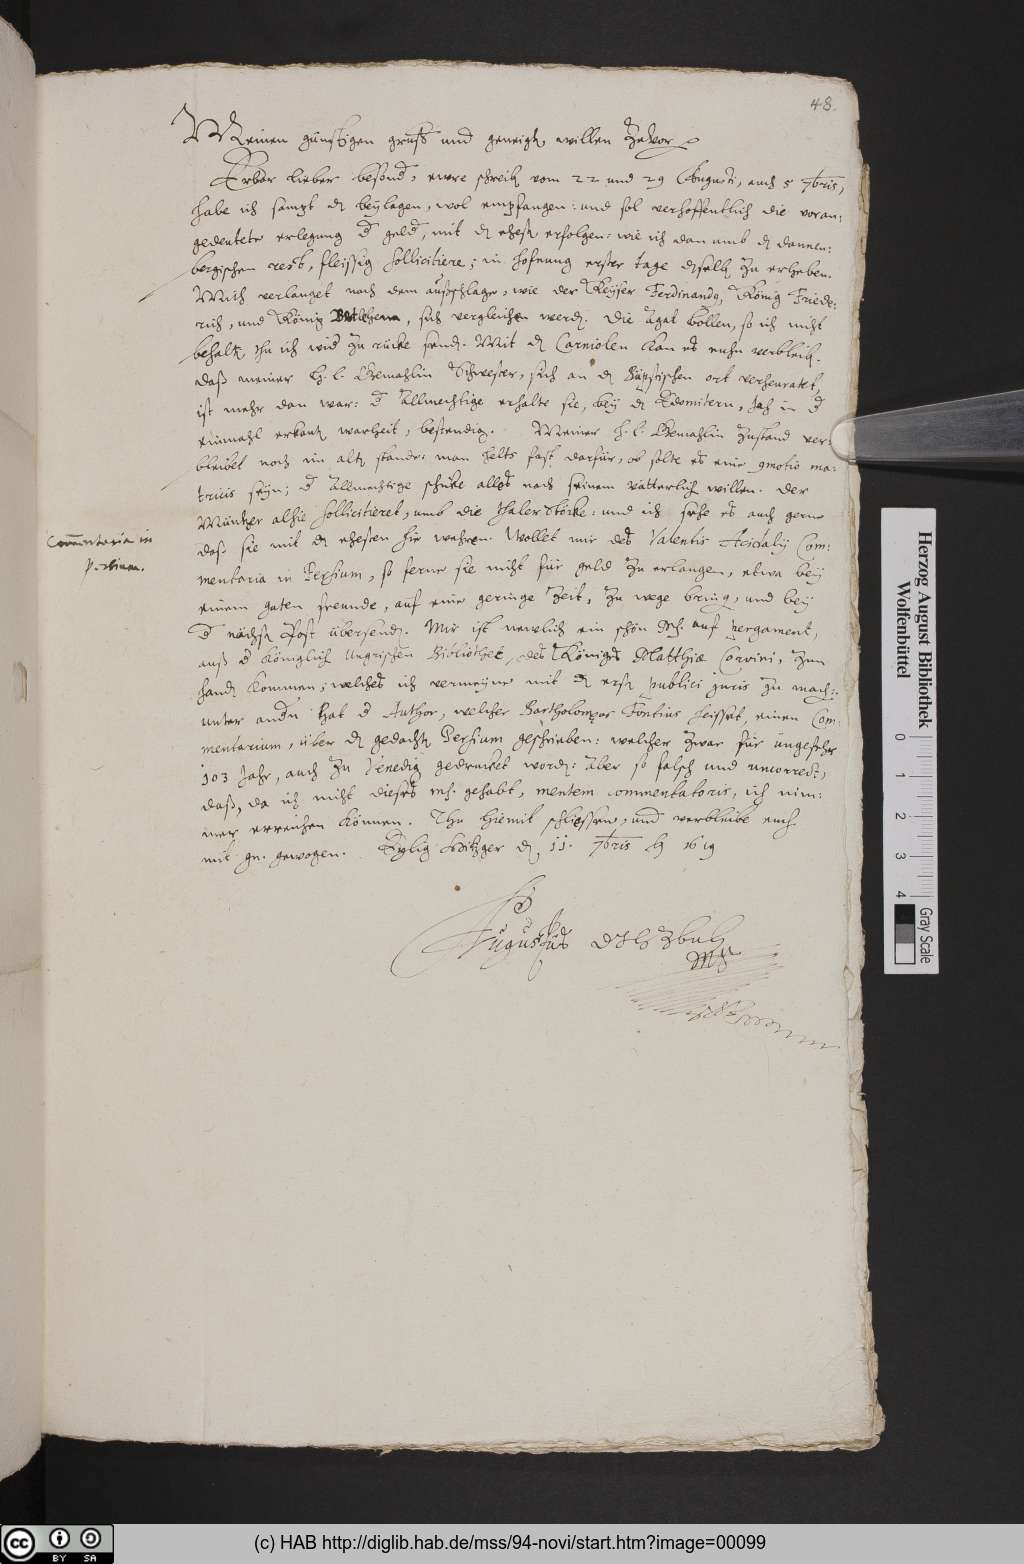 48.
Meinen günstigen gruß und geneigten willen zuvor
Erbar lieber besonder, ewre schreiben vom 22 und 29 Augusti, auch 5 7bris,
habe ich sampt den beylagen, wol empfangen: und sol verhoffentlich die voran:
gedeutete erlegung der gelder, mit den ehesten erfolgen: wie ich dan umb den dannen:
bergischen rest, fleissig sollicitiere; in hofnung erster tage denselben zu erheben.
Mich verlanget nach dem außschlage, wie der Keyser Ferdinandus, König Friede:
rich, und König sich vergleichen werden. Die Agat Bollen, so ich nicht
behalten, thu ich wider zu rücke senden. Mit den Carniolen kan es verbleiben.
daß meiner h. l. Gemahlin Schwester, sich an den ort verheuratet,
ist mehr dan war: der Allmechtige erhalte sie, bey den in der
einmahl erkanten warheit, bestendig. Meiner h. l. Gemahlin zustand ver:
bleibet noch im alten stande: man helts fast darfür, ob solte es eine motio ma:
tricis seyn; der Allmechtige schicke alles nach seinem vätterlichen willen. Der
Müntzer alhie sollicitieret, umb die thaler Stöcke: und ich sehe es auch gerne
Commentaria in
Persium.
daß sie mit den ehesten hie wehren. Wollet mir des Valentis Acidalij Com:
mentaria in Persium, so ferne sie nicht für geld zu erlangen, etwa bey
einem guten freunde, auf eine geringe Zeit, zu wege bringen, und bey
der nächsten Post übersenden. Mir ist newlich ein schön Ms. auf pergament,
auß der Königlichen Ungrischen Bibliothec, des Königes Matthiæ Corvini, zun
handen kommen; welches ich vermeyne mit den ersten publici juris zu machen:
unter andern hat der Author, welcher Bartholomæus Fontius heisset, einen Com:
mentarium, über den gedachten Persium geschrieben: welcher zwar für ungefehr
103 Jahr, auch zu Venedig gedrucket worden: aber so falsch und uncorrect,
daß, da ich nicht dieses ms. gehabt, mentem commentatoris, ich nim:
mer erreichen können. Thu hiemit schliessen, und verbleibe euch
mit gn. gewogen. Eylig Hitzger den 11. 7bris 1619
Augustus HZBuL
Mpp
Herzog August Bibliothek
Wolfenbüttel
0 1 2 3 4
Gray Scale
cc BY SA
(c) HAB http://diglib.hab.de/mss/94-novi/start.htm?image=00099